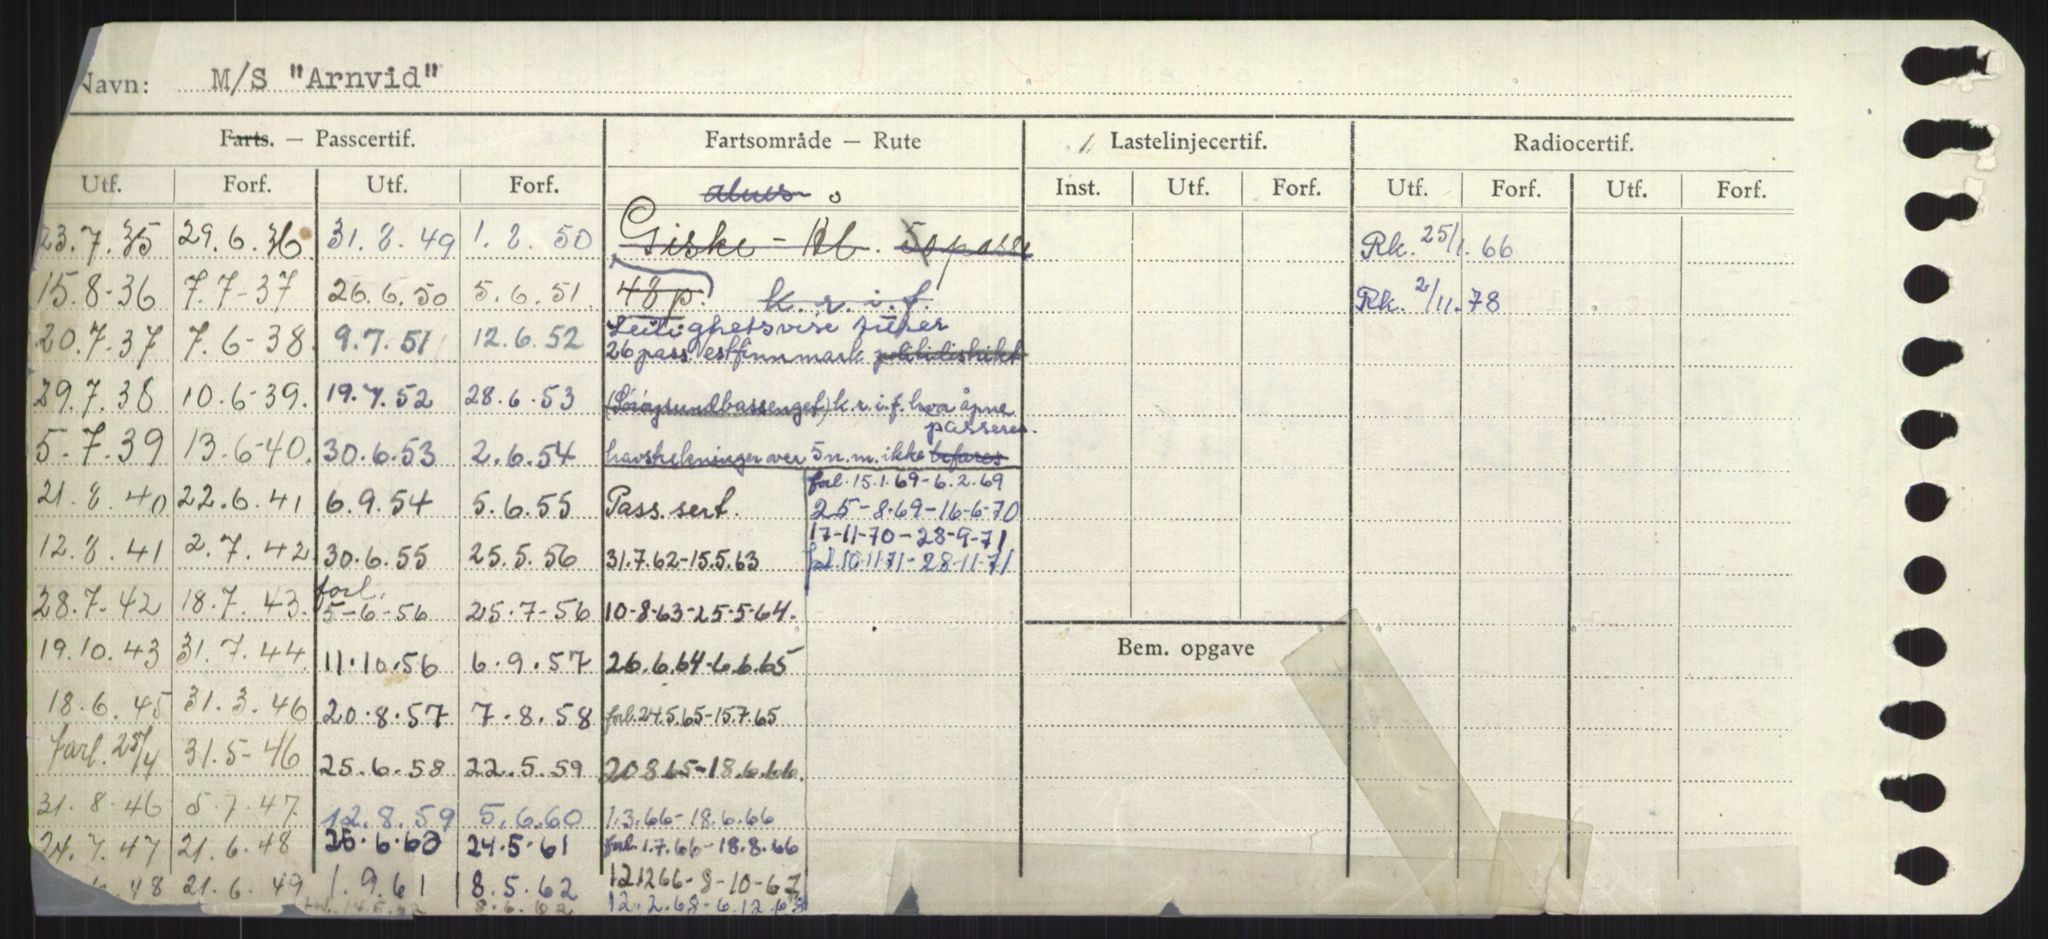 Navn: M/S "Arnvid"
Farts. — Passcertif. Fartsområde — Rute Lastelinjecertif. Radiocertif.
Utf. Forf. Utf. Forf. Inst. Utf. Forf. Utf. Forf. Utf. Forf.
23.7.35 29.6.36 31.8.49 1.8.50 Giske - Ålb. 50 passe Rk. 25/1.66
15.8-36 7.7-37 26.6.50 5.6.51 48 p. k.r.i.f. Rk. 2/11.78
20.7.37 7.6-38 9.7.51 12.6.52 Leilighetsvise turer
26 pass. estfinnmark politidistrikt
29.7.38 10.6-39. 19.7.52 28.6.53 k.r.i.f. hvor åpne
passeres.
5.7.39 13.6-40. 30.6.53 2.6.54 havstrekninger over 5 n.m. ikke befares
forl. 15.1.69-6.2.69
21.8.40 22.6.41 6.9.54 5.6.55 Pass. sert. 25-8.69-16-6-70
17-11-70-28-9-71
12.8.41 2.7.42 30.6.55 25.5.56 31.7.62-15.5.63 forl. 10.11.71-28-11-71
28.7-42 18.7.43. forl. 5-6-56 25.7-56 10-8-63-25-5-64.
Bem. opgave
19.10.43 31.7.44 11.10.56 6.9.57 26.6.64-6.6.65
18.6.45 31.3.46 20.8.57 7.8.58 forl. 24.5.65-15.7.65
forl. 25/4 31.5-46 25.6.58 22.5.59 20865-18.6.66.
31.8.46 5.7.47 12.8.59 5.6.60 1.3.66-18.6.66
24.7.47 21.6.48 25.6.60 24.5.61 forl. 1.7.66-18.8.66
48 21.6.49 1.9.61 8.5.62 121266-8-10-67
8.6.62 12.2.68-6.12.68